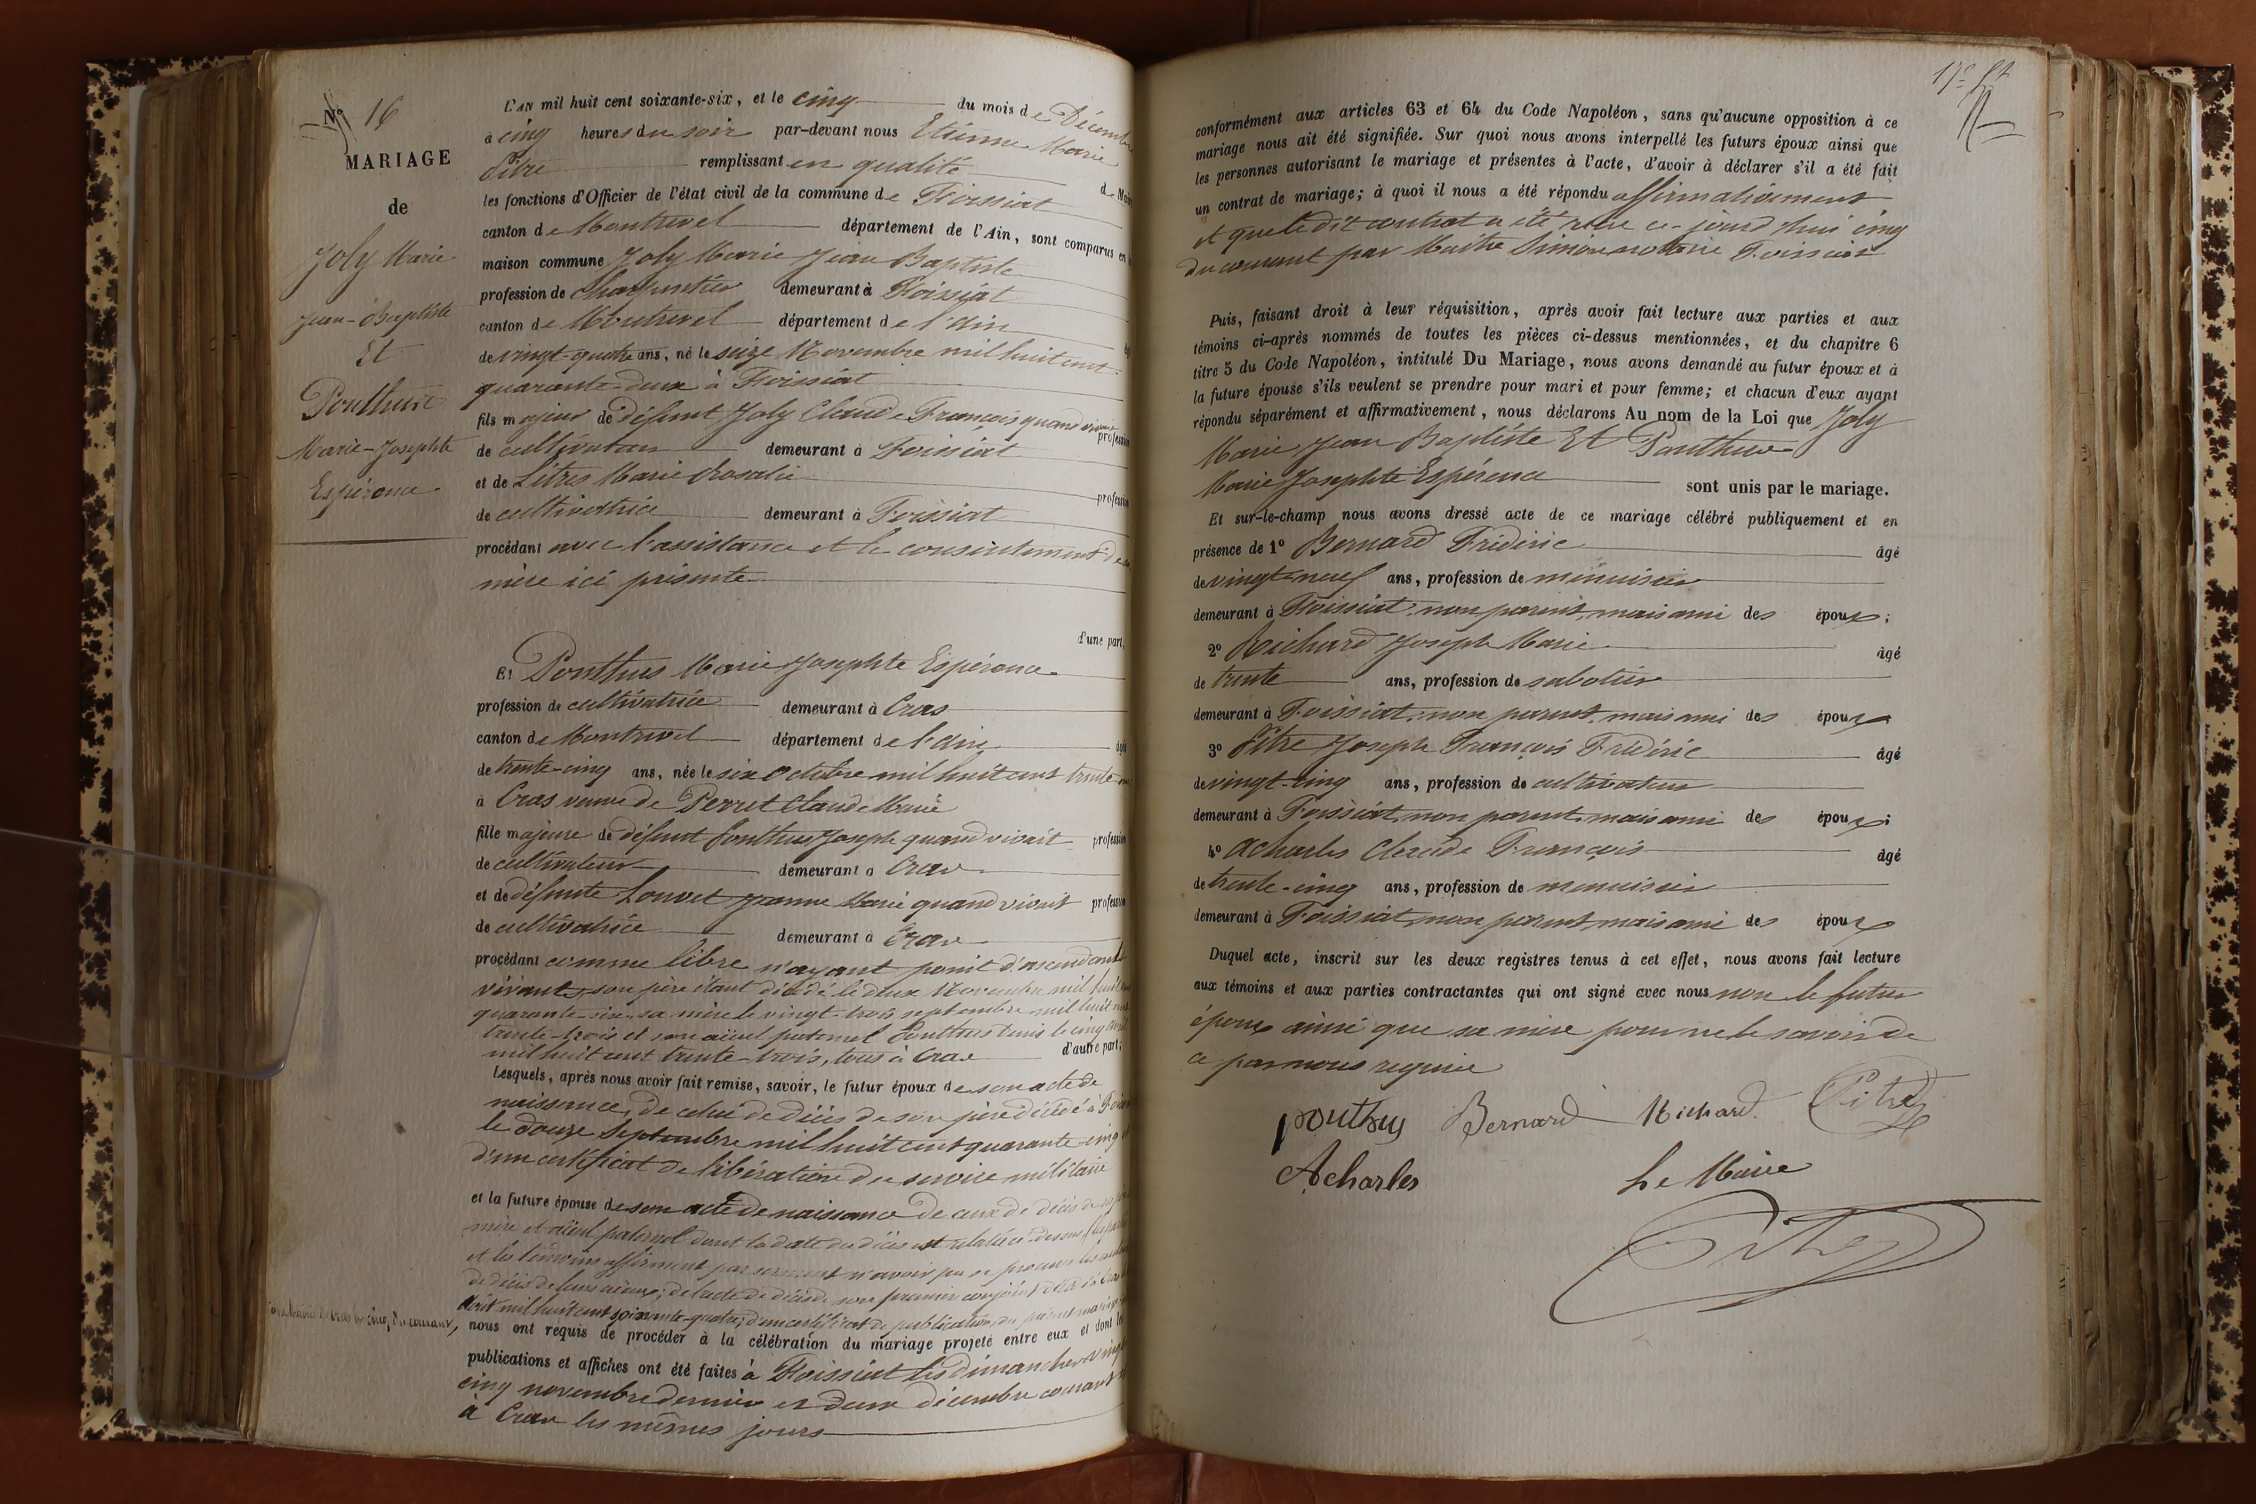 N° 16
MARIAGE
de
Joly Marie
Jean-Baptiste
Et
Ponthus
Marie-Josephte
Espérance
L'AN mil huit cent soixante-six, et le cinq du mois de Décembre
à cinq heures du soir par-devant nous Etienne Marie
Pitre remplissant en qualité de Maire
les fonctions d'Officier de l'état civil de la commune de Foissiat
canton de Montrevel département de l'Ain, sont comparus en
maison commune Joly Marie Jean Baptiste
profession de charpentier demeurant à Foissiat
canton de Montrevel département de l'ain
de vingt-quatre ans, né le seize Novembre mil huit cent
quarante-deux à Foissiat
fils majeur de défunt Joly Claude François quand vivait profession
de cultivateur demeurant à Foissiat
et de Litres Marie Rosalie profession
de cultivatrice demeurant à Foissiat
procédant avec l'assistance et le consentement de
mère ici présente
d'une part,
Et Ponthus Marie Josephte Espérance
profession de cultivatrice demeurant à Cras
canton de Montrevel département de l'ain âgée
de trente-cinq ans, née le six octobre mil huit cent trente
à Cras veuve de Perret Claude Marie
fille majeure de défunt Ponthus Joseph quand vivait profession
de cultivateur demeurant à Cras
et de défunte Louvet Jeanne Marie quand vivait profession
de cultivatrice demeurant à Cras
procédant comme libre n'ayant point d'ascendants
vivants, son père étant décédé le deux Novembre mil huit
quarante-six, sa mère le vingt-trois septembre mil huit cent
trente-trois et son aïeul paternel Ponthus Denis le cinq
mil huit cent trente-trois, tous à Cras d'autre part;
Lesquels, après nous avoir fait remise, savoir, le futur époux de son acte de
naissance, de celui de décès de son père décédé à Foissiat
le douze Septembre mil huit cent quarante-cinq
d'un certificat de libération du service militaire
et la future épouse de son acte de naissance de ceux de décès de
mère et aïeul paternel dont la date du décès est relatée ci-dessus
et les témoins affirment par serment n'avoir pu se procurer les
de décès de leurs aïeux; de l'acte de décès de son premier conjoint décédé à Cras
Août mil huit cent soixante-quatre; d'un certificat de publication du présent mariage
à Cras le cinq du courant,
nous ont requis de procéder à la célébration du mariage projeté entre eux et dont les
publications et affiches ont été faites à Foissiat les dimanches vingt
cinq novembre dernier et deux décembre courant
à Cras les mêmes jours
conformément aux articles 63 et 64 du Code Napoléon, sans qu'aucune opposition à ce
mariage nous ait été signifiée. Sur quoi nous avons interpellé les futurs époux ainsi que
les personnes autorisant le mariage et présentes à l'acte, d'avoir à déclarer s'il a été fait
un contrat de mariage; à quoi il nous a été répondu affirmativement
et que le dit contrat a été reçu ce-jourd'hui cinq
du courant par Maître Simon notaire Foissiat
Puis, faisant droit à leur réquisition, après avoir fait lecture aux parties et aux
témoins ci-après nommés de toutes les pièces ci-dessus mentionnées, et du chapitre 6
titre 5 du Code Napoléon, intitulé Du Mariage, nous avons demandé au futur époux et à
la future épouse s'ils veulent se prendre pour mari et pour femme; et chacun d'eux ayant
répondu séparément et affirmativement, nous déclarons Au nom de la Loi que Joly
Marie Jean Baptiste Et Ponthus
Marie Josephte Espérance sont unis par le mariage.
Et sur-le-champ nous avons dressé acte de ce mariage célébré publiquement et en
présence de 1° Bernard Fréderic âgé
de vingt-neuf ans, profession de menuisier
demeurant à Foissiat, non parent, mais ami des époux;
2° Richard Joseph Marie âgé
de trente ans, profession de sabotier
demeurant à Foissiat, non parent, mais ami des époux
3° Pitre Joseph François Fréderic âgé
de vingt-cinq ans, profession de cultivateur
demeurant à Foissiat, non parent, mais ami des époux;
4° Acharles Claude François âgé
de trente-cinq ans, profession de menuisier
demeurant à Foissiat, non parent, mais ami des époux
Duquel acte, inscrit sur les deux registres tenus à cet effet, nous avons fait lecture
aux témoins et aux parties contractantes qui ont signé avec nous non le futur
époux ainsi que sa mère pour ne le savoir de
ce par nous requis
ponthus Bernard Richard Pitre
Acharles Le Maire
Pitre